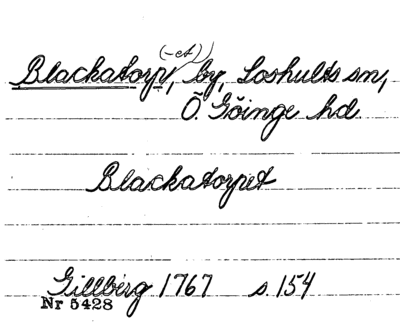 Blackatorp(-et), by, Loshults sn,
Ö. Göinge hd
Blackatorpet
Gillberg 1767 s. 154
Nr 5428